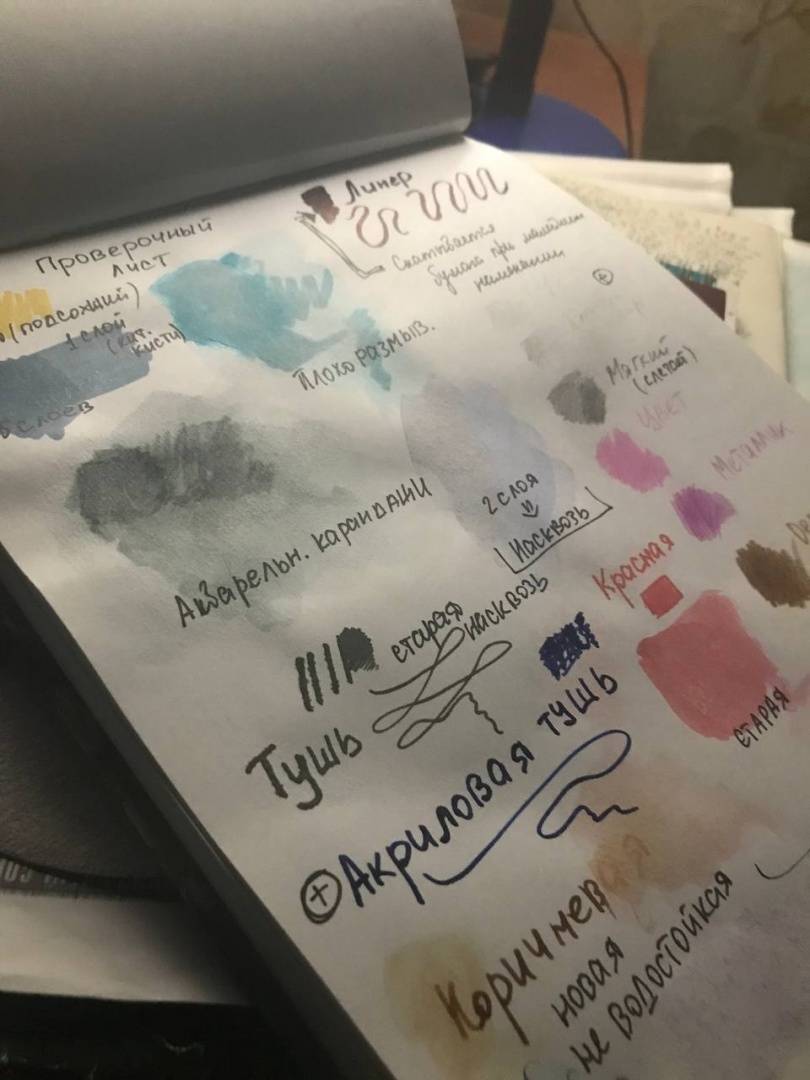 Проверочный
лист
(подсохший)
1 слой
(кит.
кисти)
5 слоев
Линер
Скатывается
бумага при малейшем
намокании
+
Плохо размыв.
Мягкий
(слепой)
Цвет
Металлик
Акварельн. карандаши
2 слоя
⇓
Насквозь
Красная
старая
старая
насквозь
Тушь
+ Акриловая тушь
Коричневая
новая
не водостойкая